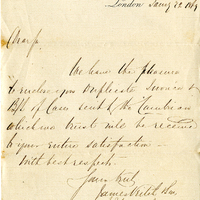 London Jany 22 1869
We have the pleasure
to enclose you Duplicate Invoice &
B/L of Case sent
which we trust will be received
to your entire satisfaction —
With best respects
Yours truly
James